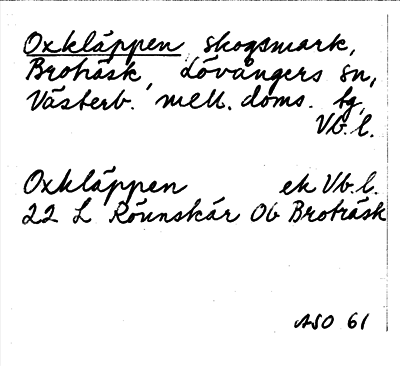 Oxkläppen, skogsmark,
Broträsk, Lövångers sn,
Västerb. mell. doms. fg,
Vb. l.
Oxkläppen ek Vb. l.
22 L Rönnskär Ob Broträsk
ASO 61